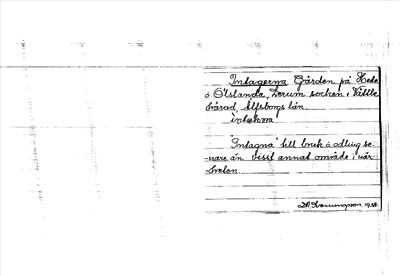 Intagerna Gården på Hede
å Ölslanda, Lerum socken i Vättle
härad, Älfsborgs län.
intakəna
"Intagna" till bruk å odling se-
nare än visst annat område i när-
heten.
1938